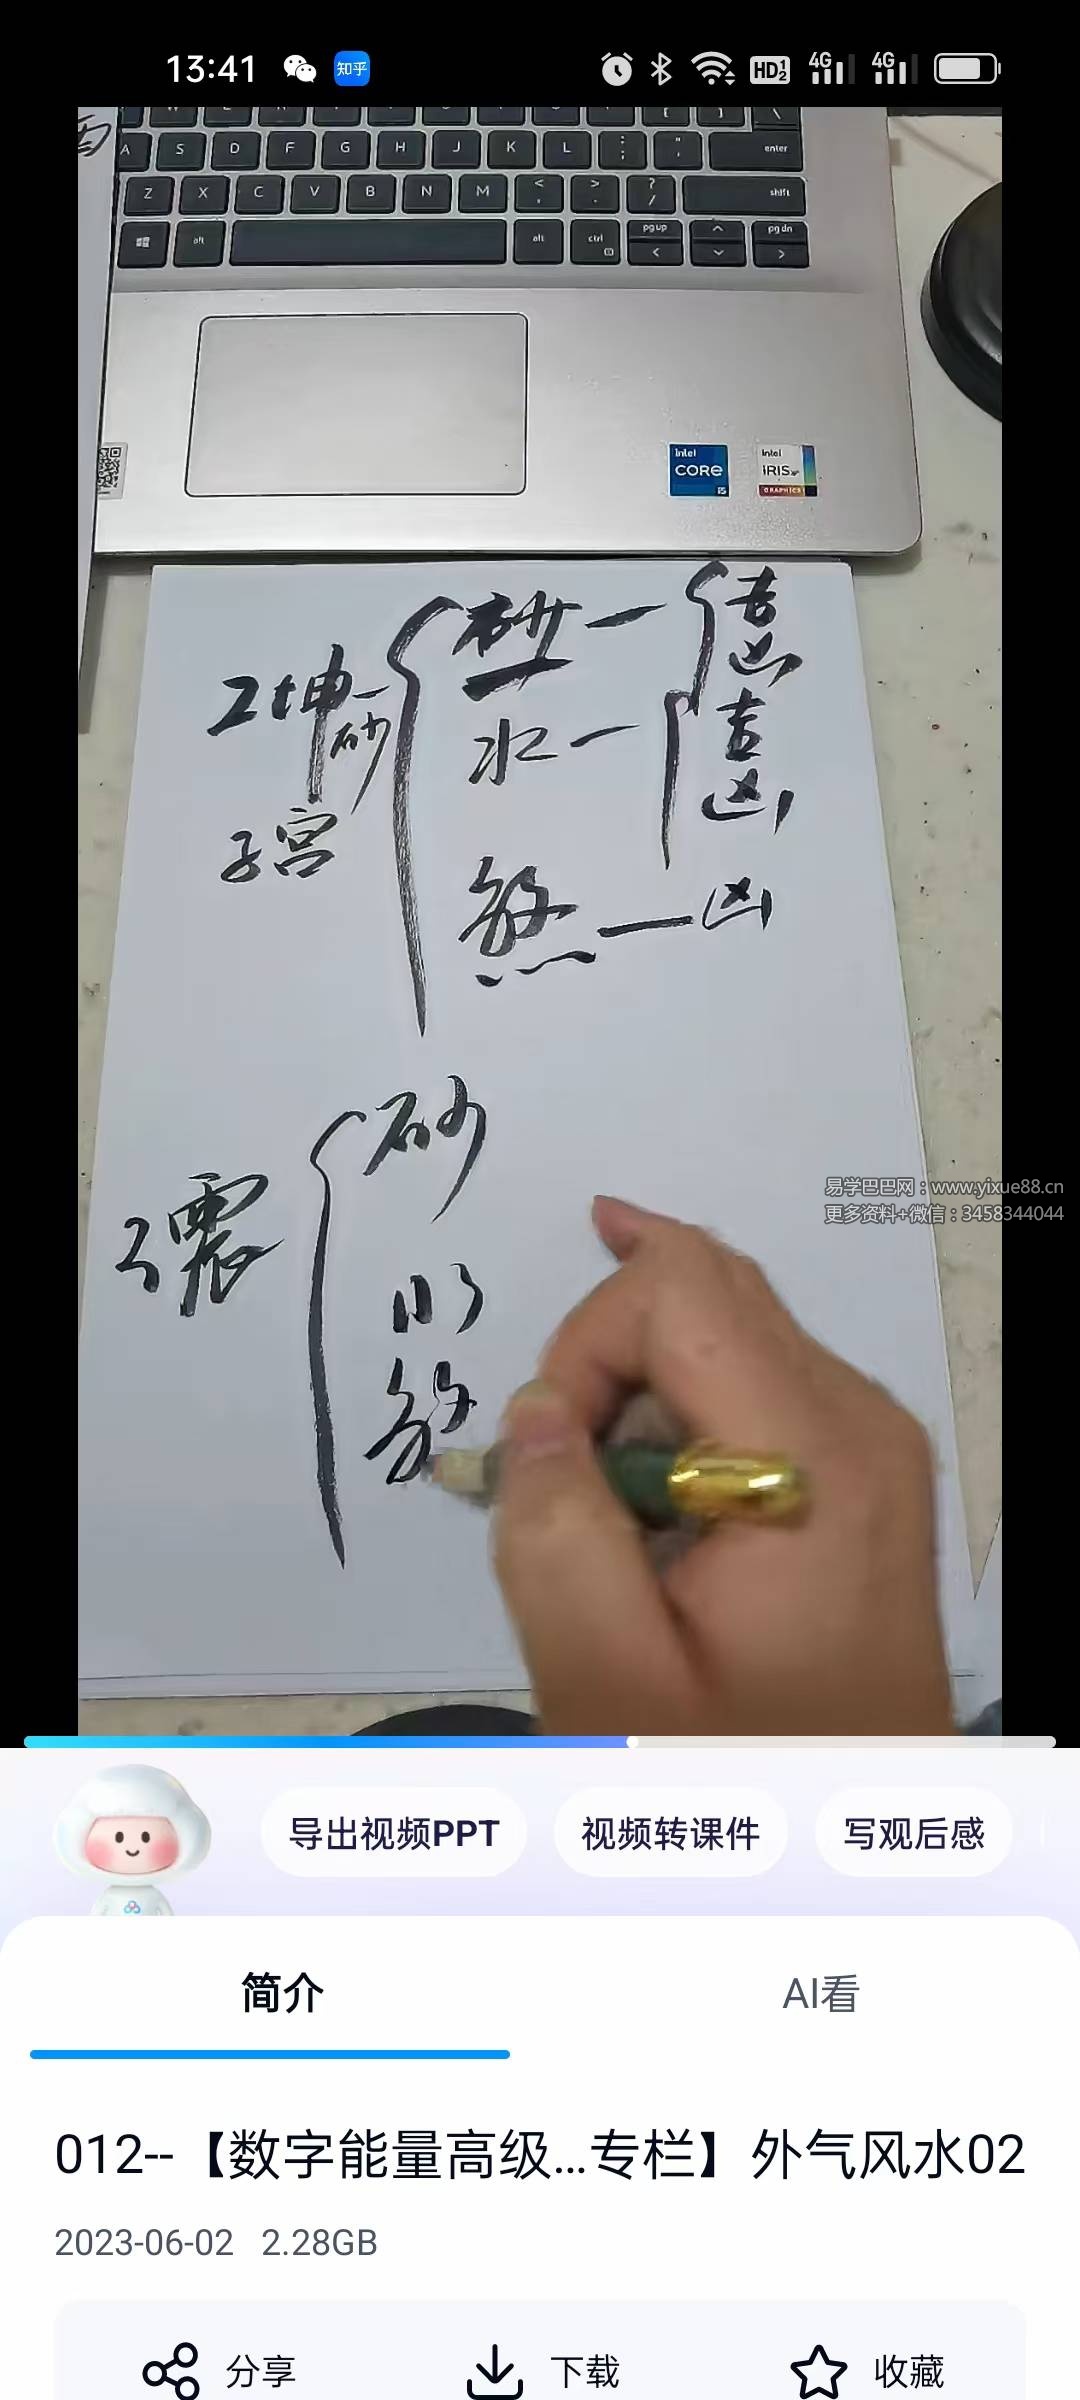 13:41 知乎 HD 1 2 4G 4G
W [ ] \
A S D F G H J K L ; : ' " enter
Z X C V B N M < , > . ? / shift
alt alt ctrl pg up pg dn
intel CORE i5
intel IRIS Xe GRAPHICS
2坤 砂
子宫
砂 一 吉
凶
水 一 吉
凶
煞 一 凶
3震
砂
水
煞
易学巴巴网：www.yixue88.cn
更多资料+微信：3458344044
导出视频PPT 视频转课件 写观后感
简介 AI看
012--【数字能量高级...专栏】外气风水02
2023-06-02 2.28GB
分享 下载 收藏